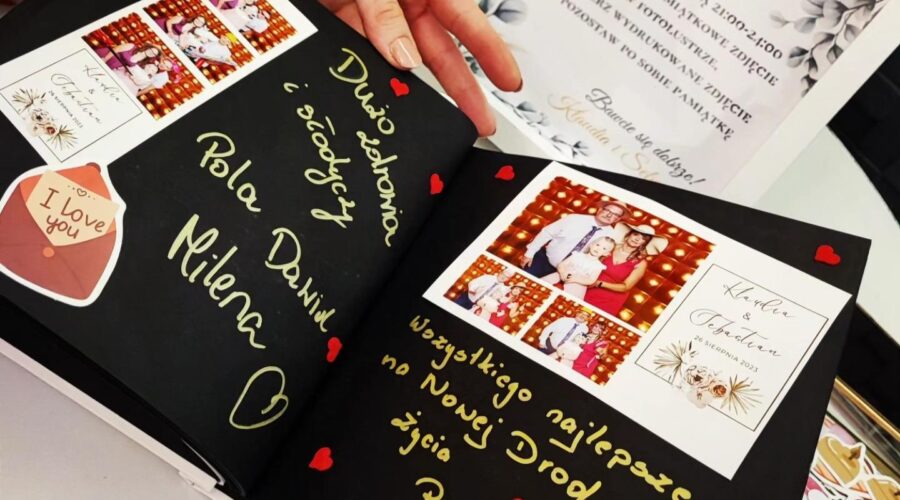 Klaudia
&
Sebastian
26 SIERPNIA 2023
I love
you
Dużo zdrowia
i słodyczy
Pola Dawid
Milena
21:00-24:00
PAMIĄTKOWE ZDJĘCIE
FOTOLUSTRZE,
WYDRUKOWANE ZDJĘCIE
POZOSTAW PO SOBIE PAMIĄTKĘ
Bawcie się dobrze!
Klaudia i
Klaudia
&
Sebastian
26 SIERPNIA 2023
Wszystkiego najlepsze
na Nowej Drod
życia